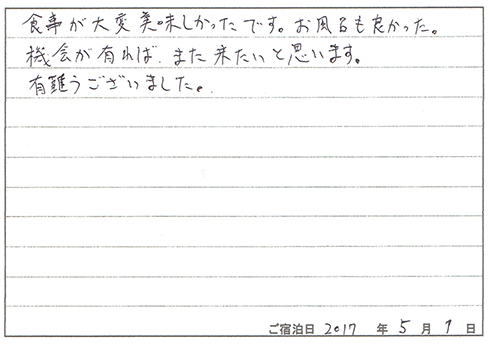 食事が大変美味しかったです。お風呂も良かった。
機会が有れば、また来たいと思います。
有難うございました。
ご宿泊日 2017 年 5 月 1 日